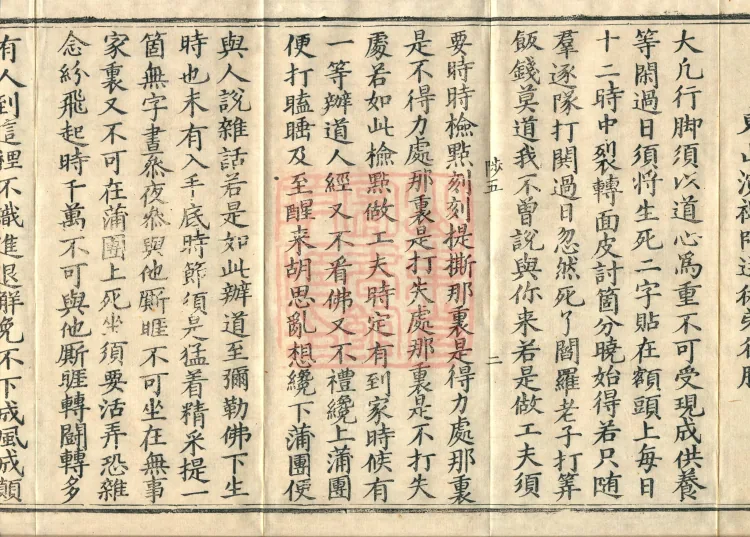 東山演禪師送徒弟行脚
大凢行脚須以道心爲重不可受現成供養
等閑過日須將生死二字貼在額頭上每日
十二時中裂轉面皮討箇分曉始得若只隨
羣逐隊打閧過日忽然死了閻羅老子打筭
飯錢莫道我不曾說與你来若是做工夫須
陟五 二
要時時檢㸃刻刻提撕那裏是得力處那裏
是不得力處那裏是打失處那裏是不打失
處若如此檢㸃做工夫時定有到家時候有
一等辦道人經又不看佛又不禮纔上蒲團
便打瞌睡及至醒来胡思亂想纔下蒲團便
與人說雜話若是如此辦道至彌勒佛下生
時也未有入手底時節須是猛着精采提一
箇無字書叅夜叅與他厮睚不可坐在無事
家裏又不可在蒲團上死坐須要活弄恐雜
念紛飛起時千萬不可與他厮睚轉鬬轉多
有人到這裡不識進退觧免不下成風成顛